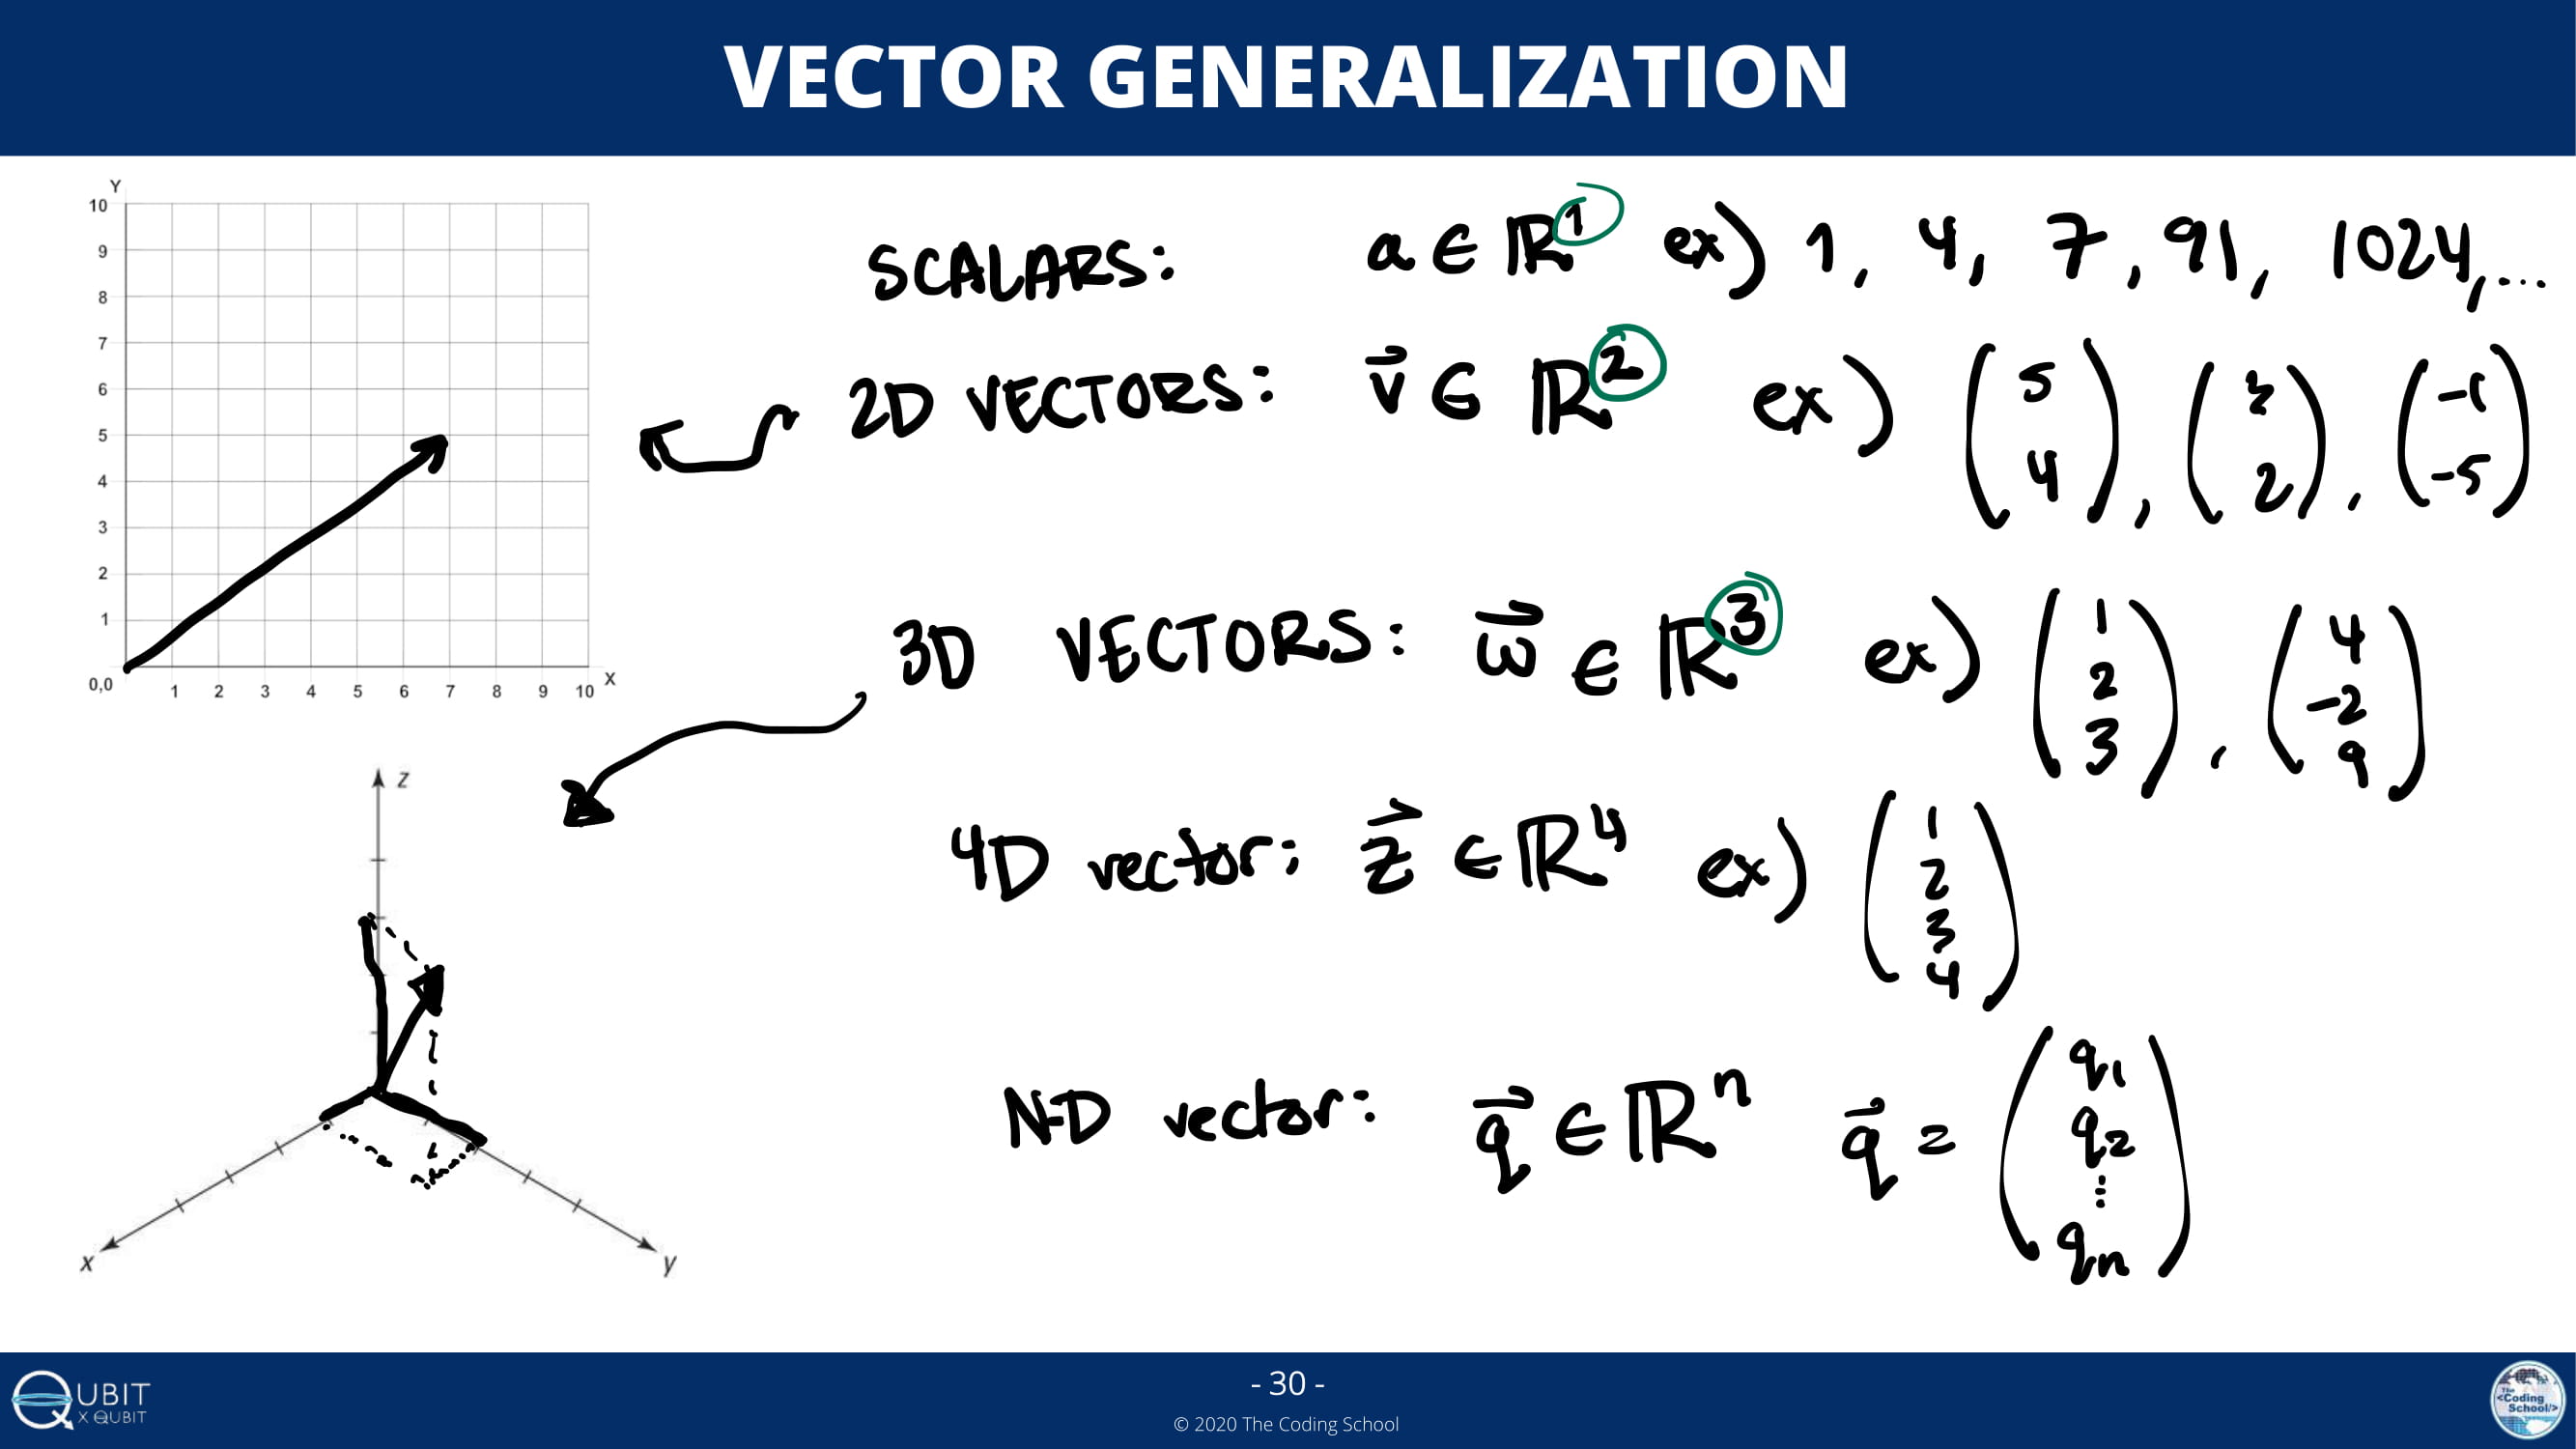 VECTOR GENERALIZATION
Y
10
9
8
7
6
5
4
3
2
1
0,0
1 2 3 4 5 6 7 8 9 10 X
SCALARS: a ∈ ℝ¹ ex) 1, 4, 7, 91, 1024, ...
2D VECTORS: v⃗ ∈ ℝ² ex) (5 4), ( 2), (-1 -5)
3D VECTORS: w⃗ ∈ ℝ³ ex) (1 2 3), (4 -2 9)
4D vector: z⃗ ∈ ℝ⁴ ex) (1 2 3 4)
N-D vector: q⃗ ∈ ℝⁿ q⃗ = (q₁ q₂ ⋮ qₙ)
z
x
y
QUBIT
X QUBIT
- 30 -
© 2020 The Coding School
The
<Coding
School/>